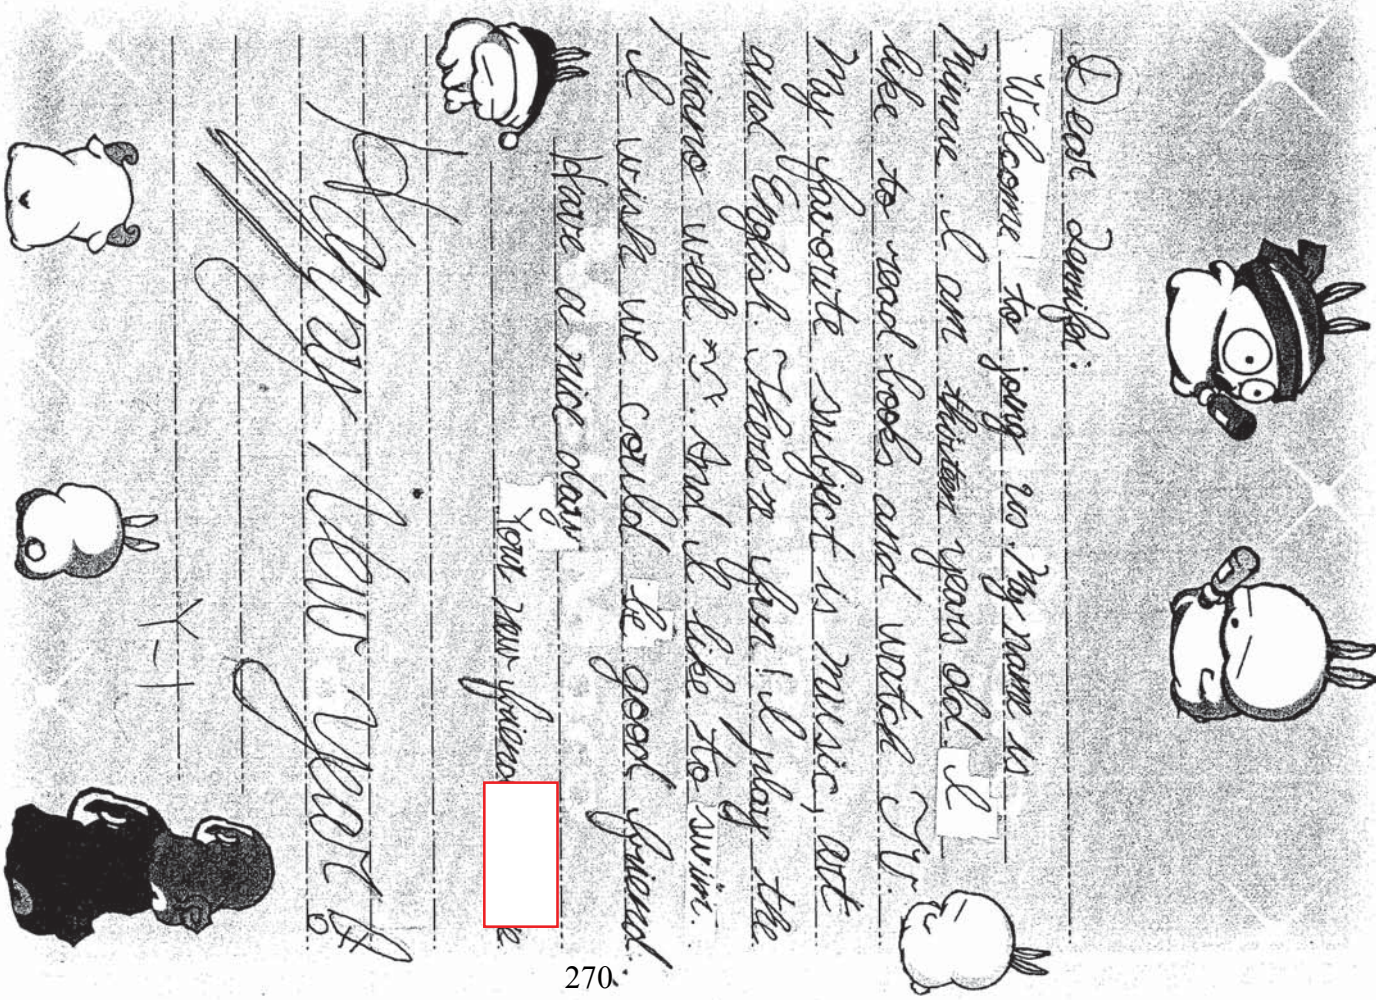 Dear Jennifer:
Welcome to jong us. My name is
Minnie. I am thirteen years old. I
like to read books and watch TV.
My favorite subject is music, art
and English. There're fun! I play the
piano well ~. And I like to swim.
I wish we could be good friend.
Have a nice day
Your new friend
e
Happy New year!!
Y-T
270